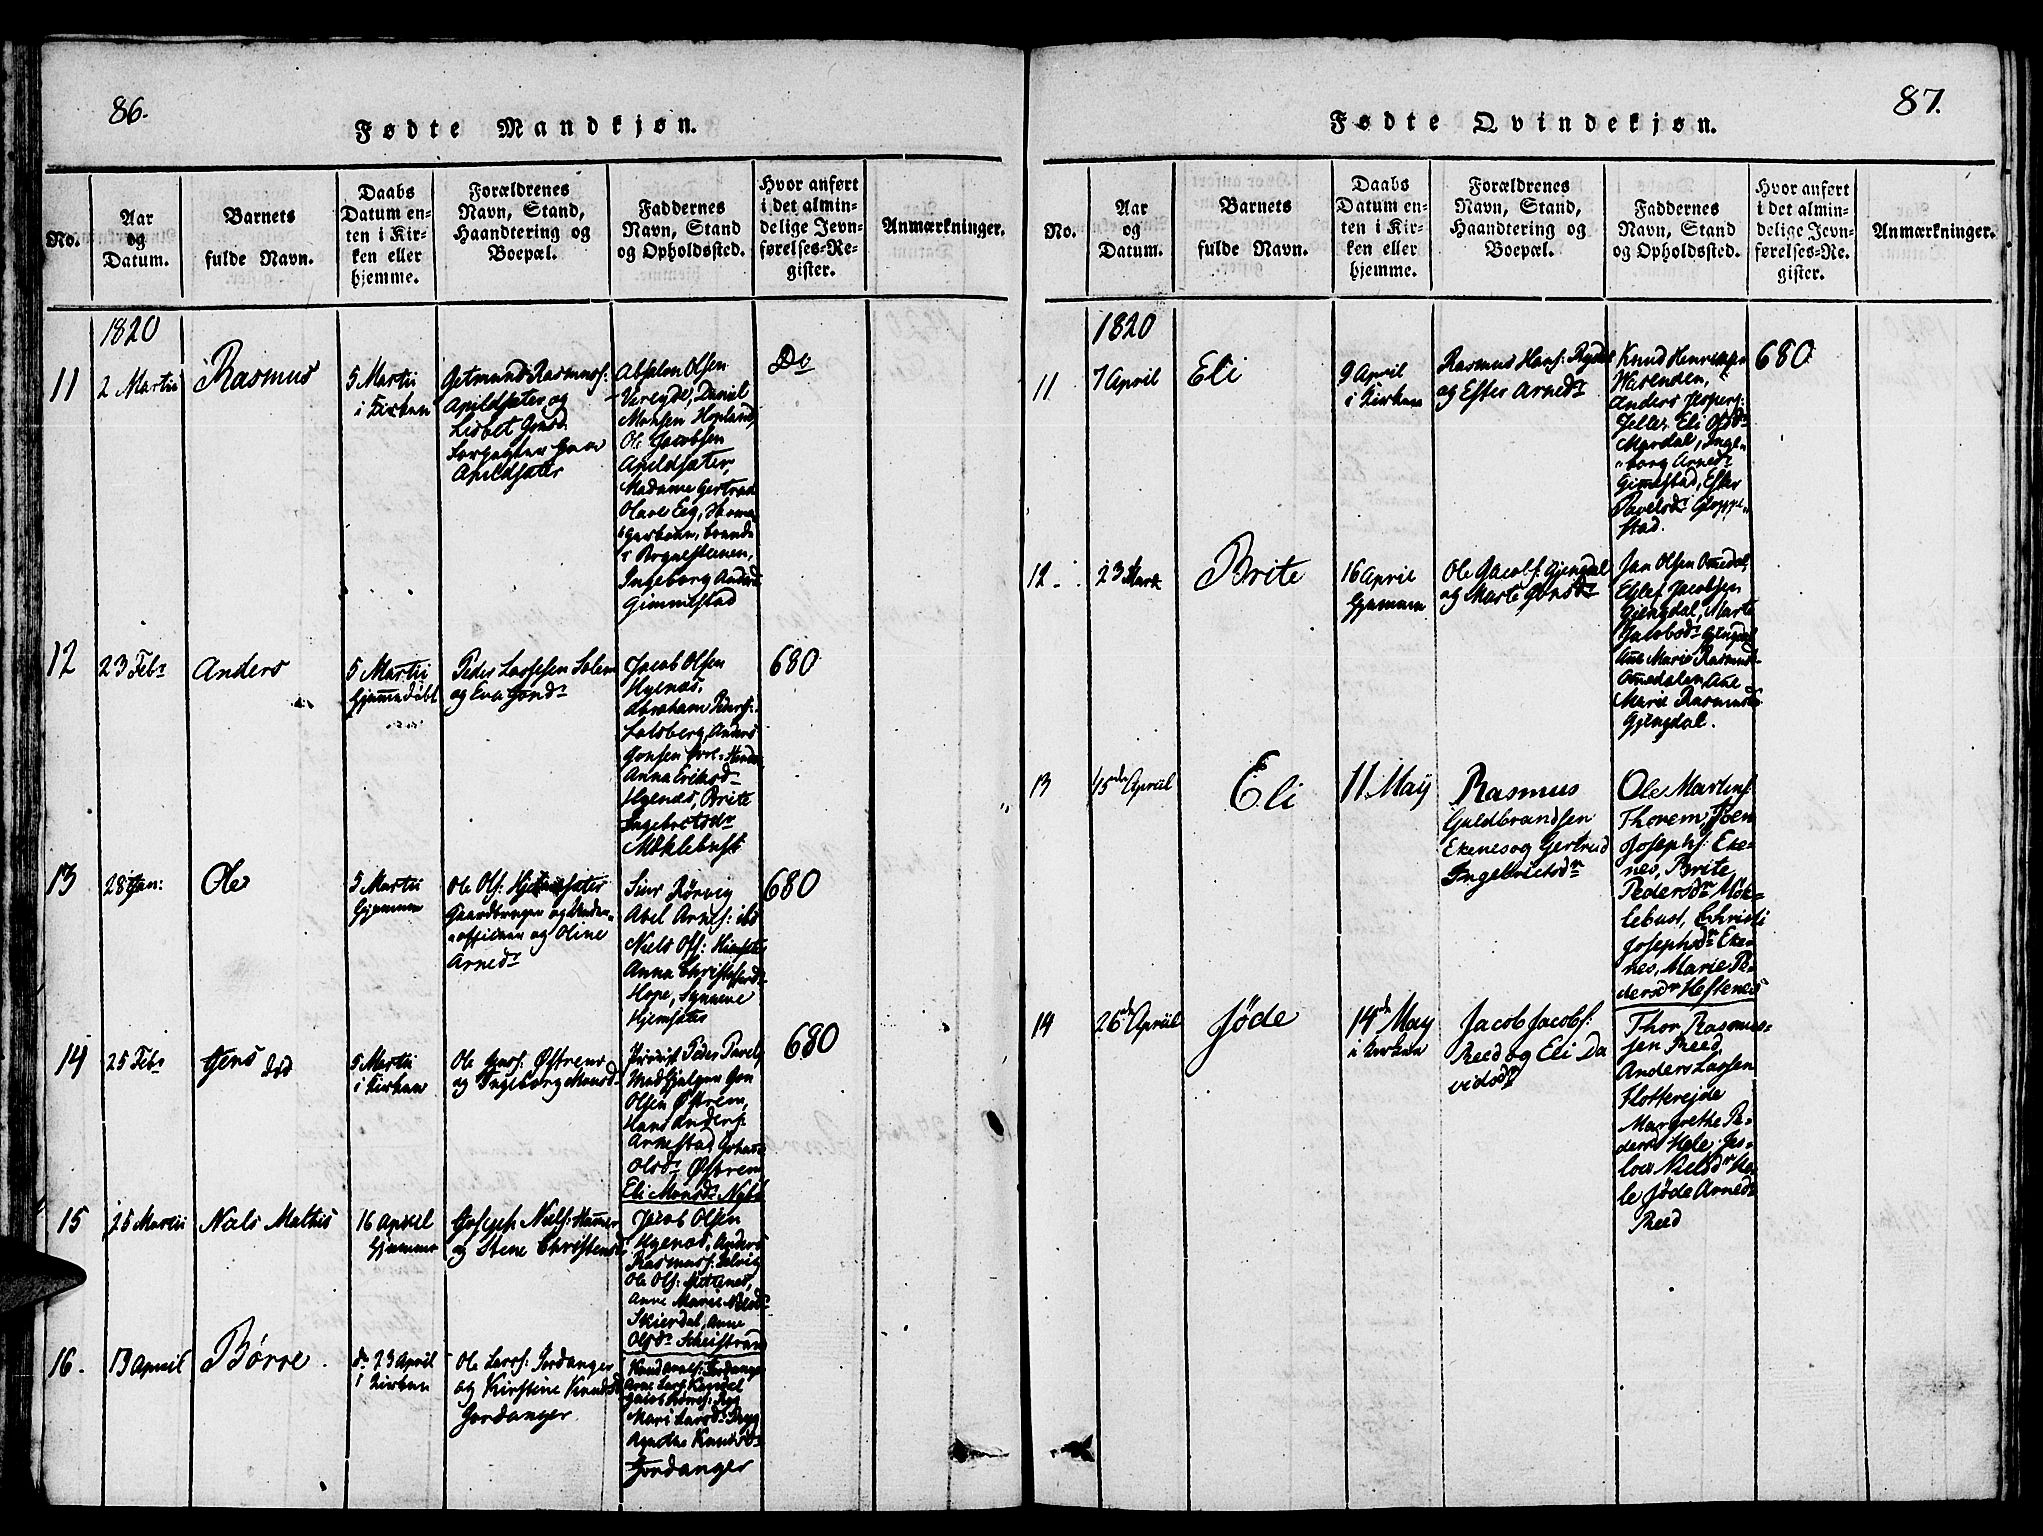 86.
Fødte Mandkjøn.
No.
Aar
og
Datum.
Barnets
fulde Navn.
Daabs
Datum en-
ten i Kir-
ken eller
hjemme.
Forældrenes
Navn, Stand,
Haandtering og
Boepæl.
Faddernes
Navn, Stand
og Opholdssted.
Hvor anført
i det almin-
delige Jevn-
førelses-Re-
gister.
Anmærkninger.
1820
11
2 Martii
Rasmus
5 Martii
i Kirken
Getmund Rasmuss:
Apildsæter og
Lisbet Jonsd.
Apildsæter
Absalon Olsen
Veregde, Daniel
Monsen Hopland
Ole Jacobsen
Apildsæter,
Madame Gertrud
Olave Eeg,
Ingeborg Andersd
Gimmestad
Do
12
23 Febr
Anders
5 Martii
Hjemmedøbt
Peder Lassesen Solem
og Eva Jonsdr
Jacob Olsen
Hyenæs,
Abraham Peders:
Anders
Jonsen
Anna Eriksdr
Hyenæs, Brite
Ingebretsdr
Møklebust
680
13
28 Jan:
Ole
5 Martii
Hjemme
Ole Ols: Hjemsæter
Gaardbruger og Under-
officeer og Oline
Arnedr
Siur Rørvig
Abel Arnes: ibd
Niels Ols: Hiemsæter
Anna Christophersd
Hope, Synneve
Hjemsæter
680
14
25 Febr
Jens død
5 Martii
i Kirken
Ole Jenss: Østrem
og Ingeborg Monsd
Peder Pavels
Madhjelper Jon
Olsen Østrem,
Hans Anders:
Arnestad
Olsdr Østrem
Eli Monsdr Nybø
680
15
25 Martii
Nils Mathis
16 April
Hjemme
Joseph Niels: Hammer
og Stene Christensd
Jacob Olsen
Hyenæs, Anders
Rasmuss: Solvig
Ole Ols:
Anne Marie Nilsdr
Skierdal, Anne
Olsdr
16.
13 April
Børre.
dr 23 April
i Kirken
Ole Larss: Jordanger
og Kirstine Knudsd
Jordanger
Knud Arnes: Jordanger
Arne Lars
Mari Larsdr Ryg
Agnethe Knudsdr
Jordanger
87.
Fødte Qvindekjøn.
No.
Aar
og
Datum.
Barnets
fulde Navn.
Daabs
Datum en-
ten i Kir-
ken eller
hjemme.
Forældrenes
Navn, Stand,
Haandtering og
Boepæl.
Faddernes
Navn, Stand
og Opholdssted.
Hvor anført
i det almin-
delige Jevn-
førelses-Re-
gister.
Anmærkninger.
1820
11
7 April
Eli
9 April
i Kirken
Rasmus Hans: Ryde
og Ester Arnedr
Knud Henriksen
Anders Jesper:
Eli Olsdr
Mardal, Inge-
borg Arnedr
Gimmestad, Ester
Pavelsdr Gloppe-
stad.
680
12.
23 Mart
Brite
16 April
Hjemme
Ole Jacobs: Gjengdal
og Marte Jonsdr
Jan Olsen Omedal,
Jacobsen
Gjengdal, Marte
Jacobsdr Gjengdal
Ane Marie Rasmusd
Omedalen, Ane
Marie Rasmusdr
Gjengdal.
13
15de April
Eli
11 May
Rasmus
Guldbrandsen
Ekenes og Gertrud
Ingebrictsdr
Ole Martins:
Thorem, Iver
Josephs: Eke-
nes, Brite
Pedersdr Møk-
lebust, Christi
Josephsdr Eke-
nes, Marie Pe-
dersdr Hestenes
14
26de April
Jøde
14de May
i Kirken
Jacob Jacobs:
Reed og Eli Da
vidsdr
Thor Rasmus-
sen Reed
Anders Lassen
Flotterejde
Margrethe Pe-
dersd Hole
Nielsdr Ho-
le Jøde Arnedr
Reed